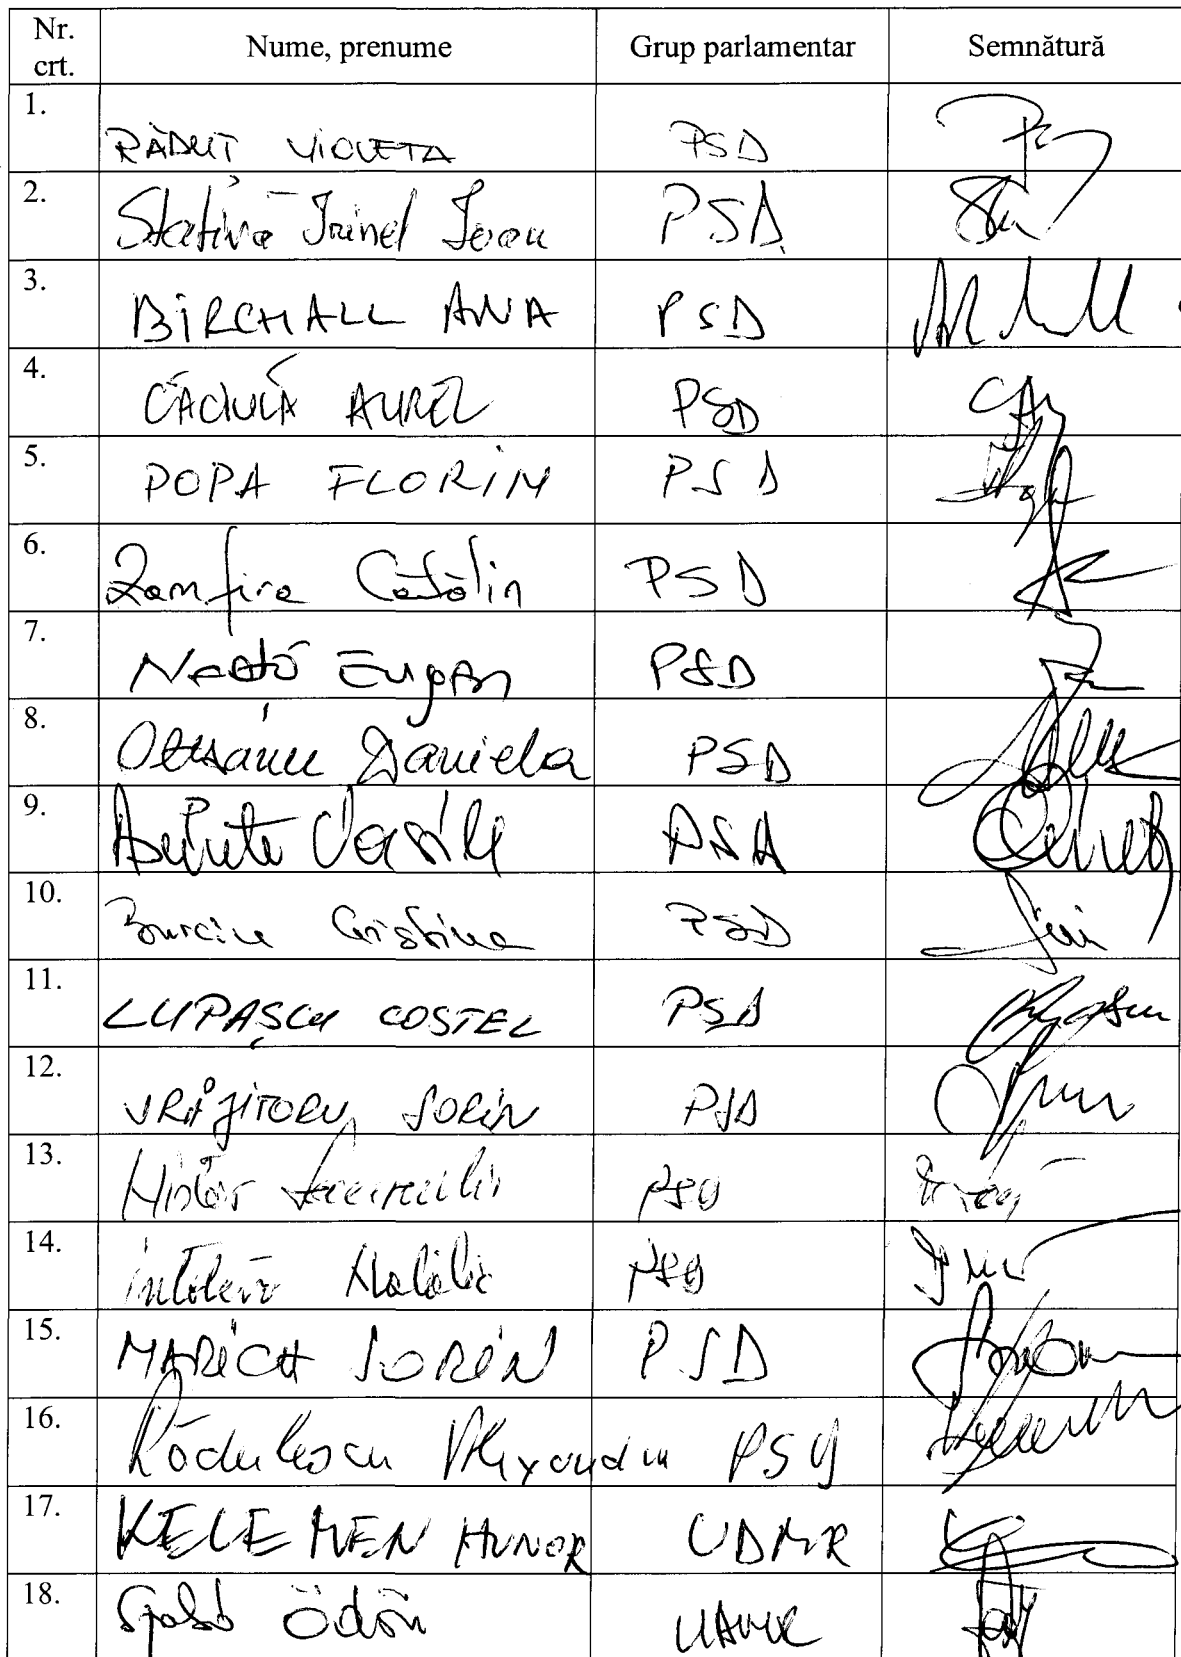 Nr. crt. Nume, prenume Grup parlamentar Semnătură
1. RĂDUȚ VIOLETA PSD
2. Stativă Irinel Ioan PSD
3. BIRCHALL ANA PSD
4. CĂCIULĂ AUREL PSD
5. POPA FLORIN PSD
6. Zamfira Cătălin PSD
7. Neață Eugen PSD
8. Oteșanu Daniela PSD
9. Vasile PSD
10. Burciu Cristina PSD
11. LUPAȘCU COSTEL PSD
12. VRĂJITORU SORIN PSD
13. PSD
14. Intotero Natalia PSD
15. MARICA SORIN PSD
16. Rădulescu Alexandru PSD
17. KELEMEN HUNOR UDMR
18. Szabó Ödön UDMR